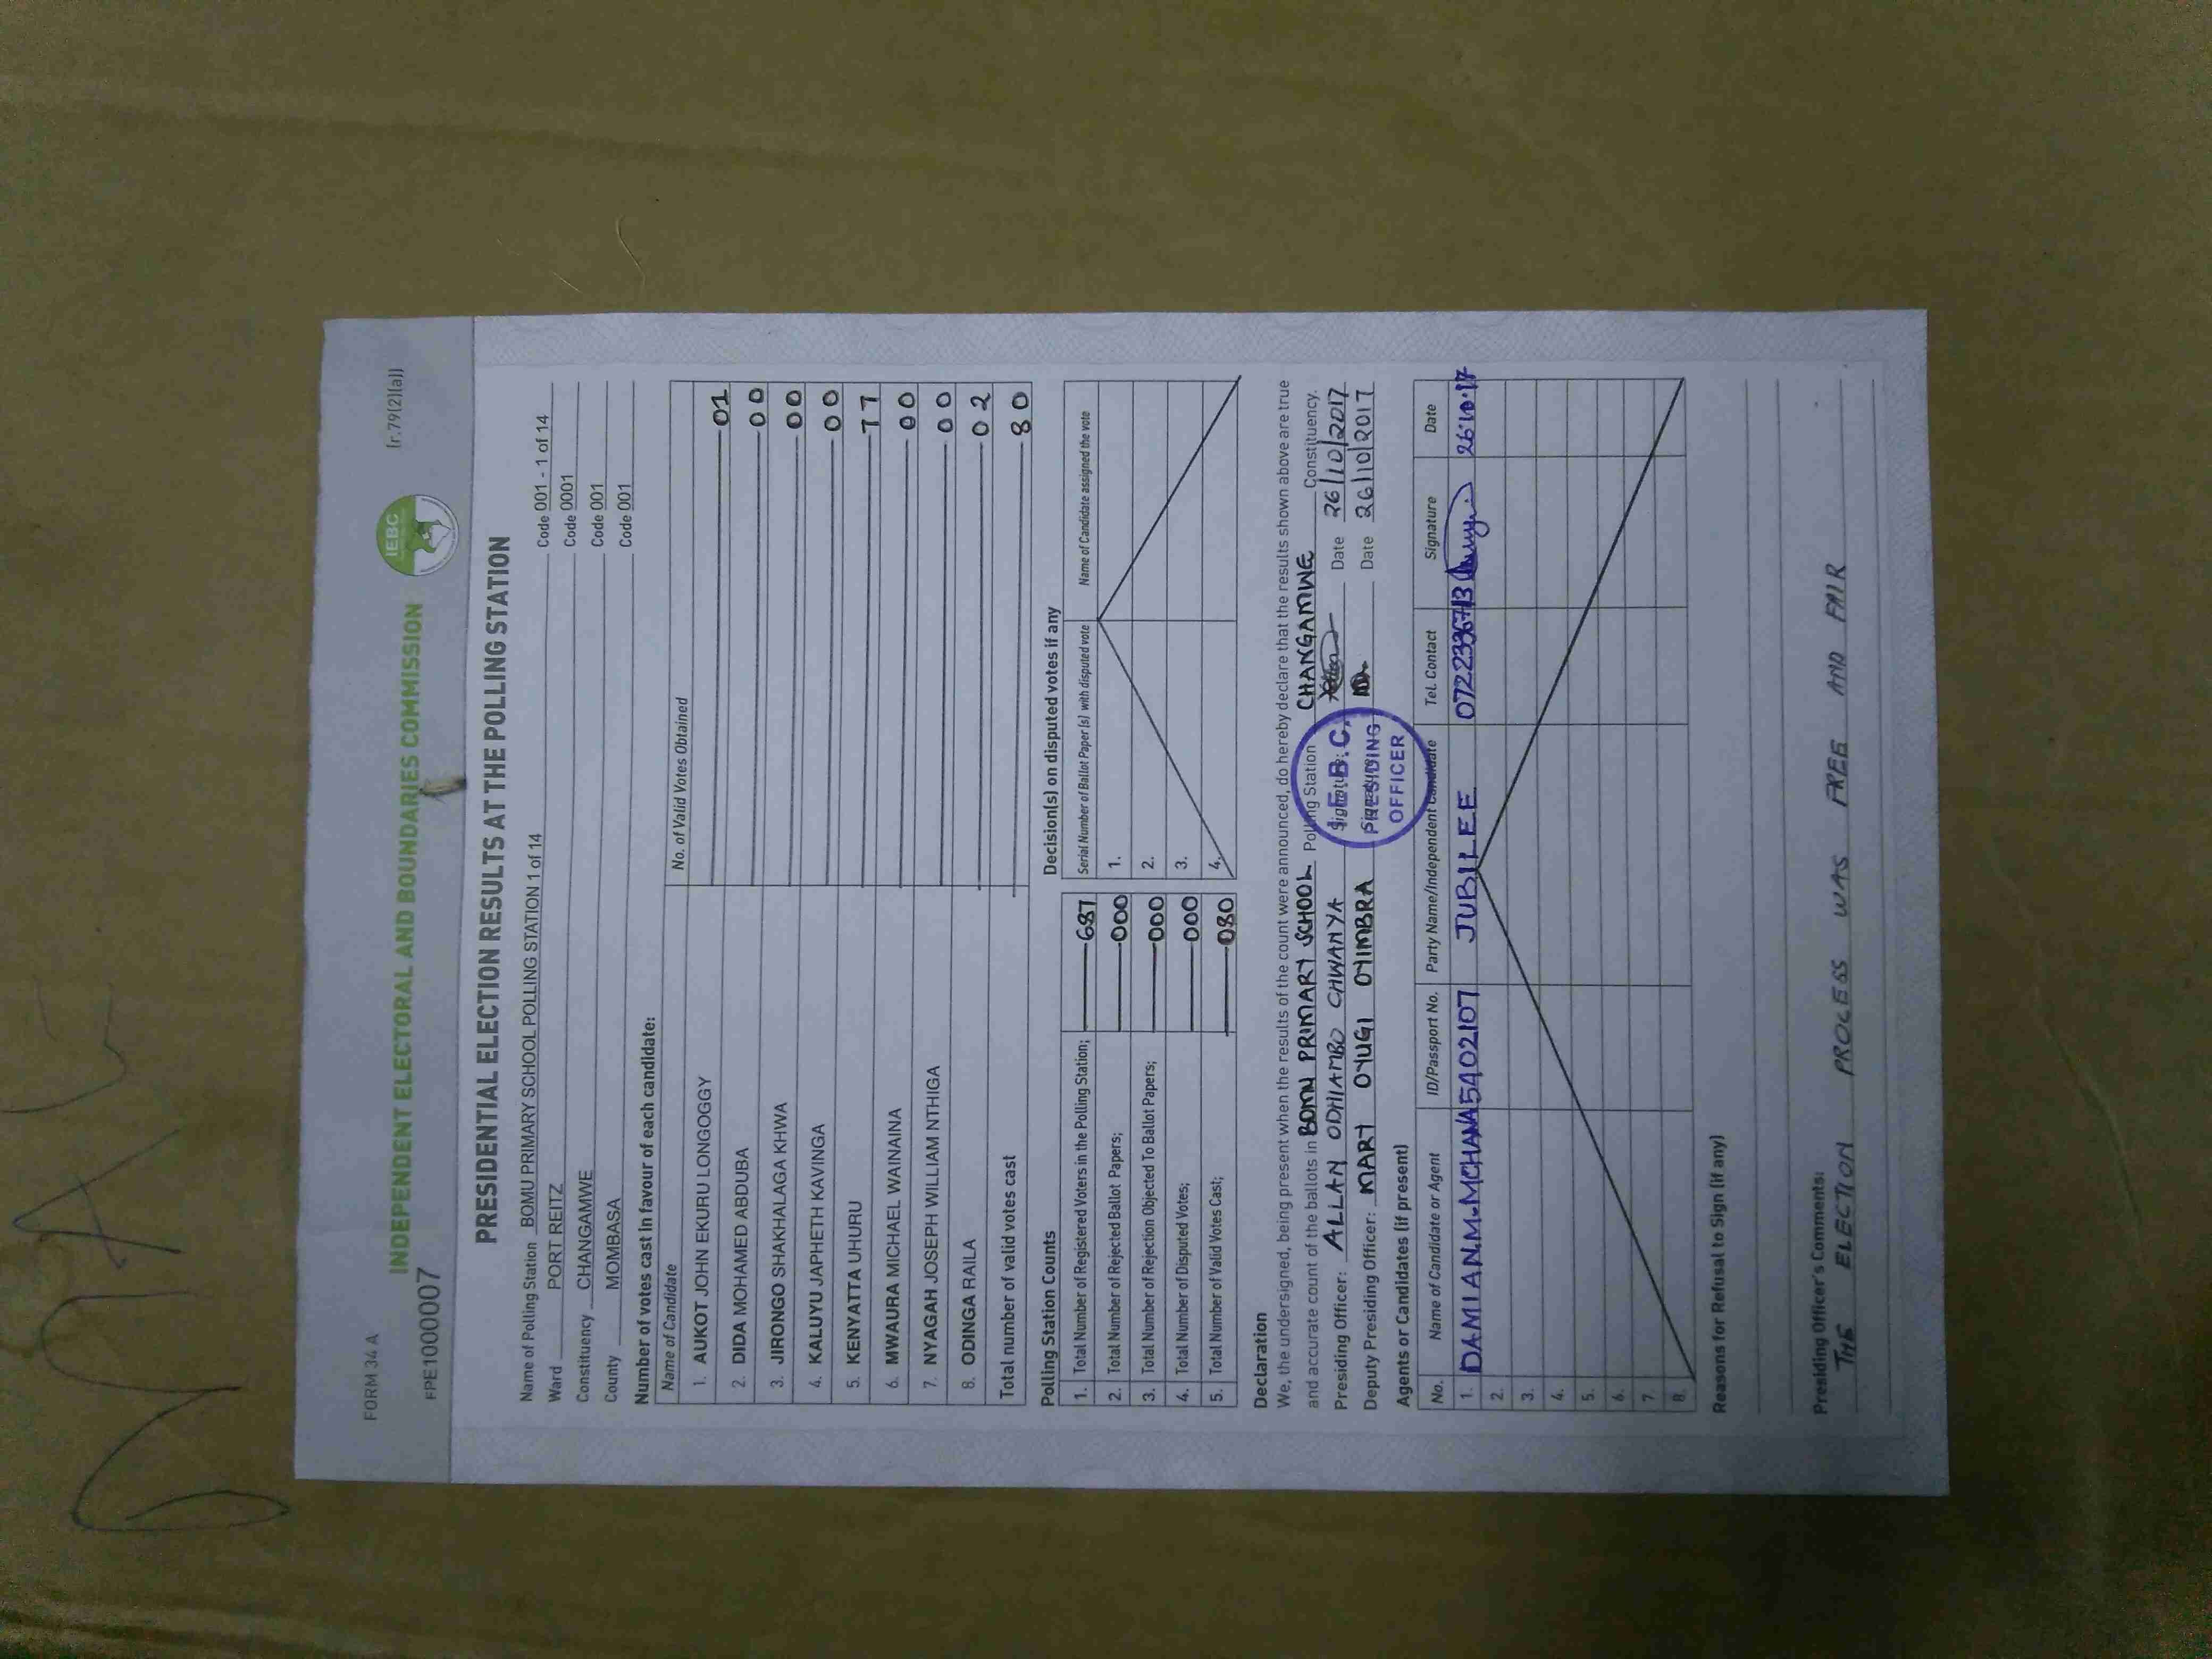 FORM 34 A
[r.79(2)(a)]
IEBC
INDEPENDENT ELECTORAL AND BOUNDARIES COMMISSION
FPE1000007
PRESIDENTIAL ELECTION RESULTS AT THE POLLING STATION
Name of Polling Station BOMU PRIMARY SCHOOL POLLING STATION 1 of 14 Code 001 - 1 of 14
Ward PORT REITZ Code 0001
Constituency CHANGAMWE Code 001
County MOMBASA Code 001
Number of votes cast in favour of each candidate:
Name of Candidate No. of Valid Votes Obtained
1. AUKOT JOHN EKURU LONGOGGY 01
2. DIDA MOHAMED ABDUBA 00
3. JIRONGO SHAKHALAGA KHWA 00
4. KALUYU JAPHETH KAVINGA 00
5. KENYATTA UHURU 77
6. MWAURA MICHAEL WAINAINA 00
7. NYAGAH JOSEPH WILLIAM NTHIGA 00
8. ODINGA RAILA 02
Total number of valid votes cast 80
Polling Station Counts
1. Total Number of Registered Voters in the Polling Station; 687
2. Total Number of Rejected Ballot Papers; 000
3. Total Number of Rejection Objected To Ballot Papers; 000
4. Total Number of Disputed Votes; 000
5. Total Number of Valid Votes Cast; 080
Decision(s) on disputed votes if any
Serial Number of Ballot Paper (s) with disputed vote Name of Candidate assigned the vote
1.
2.
3.
4.
Declaration
We, the undersigned, being present when the results of the count were announced, do hereby declare that the results shown above are true
and accurate count of the ballots in BOMU PRIMARY SCHOOL Polling Station CHANGAMWE Constituency.
Presiding Officer: ALLAN ODHIAMBO CHWANYA Signature: Date 26/10/2017
Deputy Presiding Officer: MARY OYUGI OYIMBRA Signature: Date 26/10/2017
I.E.B.C.
PRESIDING
OFFICER
Agents or Candidates (if present)
No. Name of Candidate or Agent ID/Passport No. Party Name/Independent Candidate Tel. Contact Signature Date
1. DAMIAN.M.MCHANA 5402107 JUBILEE 0722336713 26.10.17
2.
3.
4.
5.
6.
7.
8.
Reasons for Refusal to Sign (if any)
Presiding Officer's Comments:
THE ELECTION PROCESS WAS FREE AND FAIR